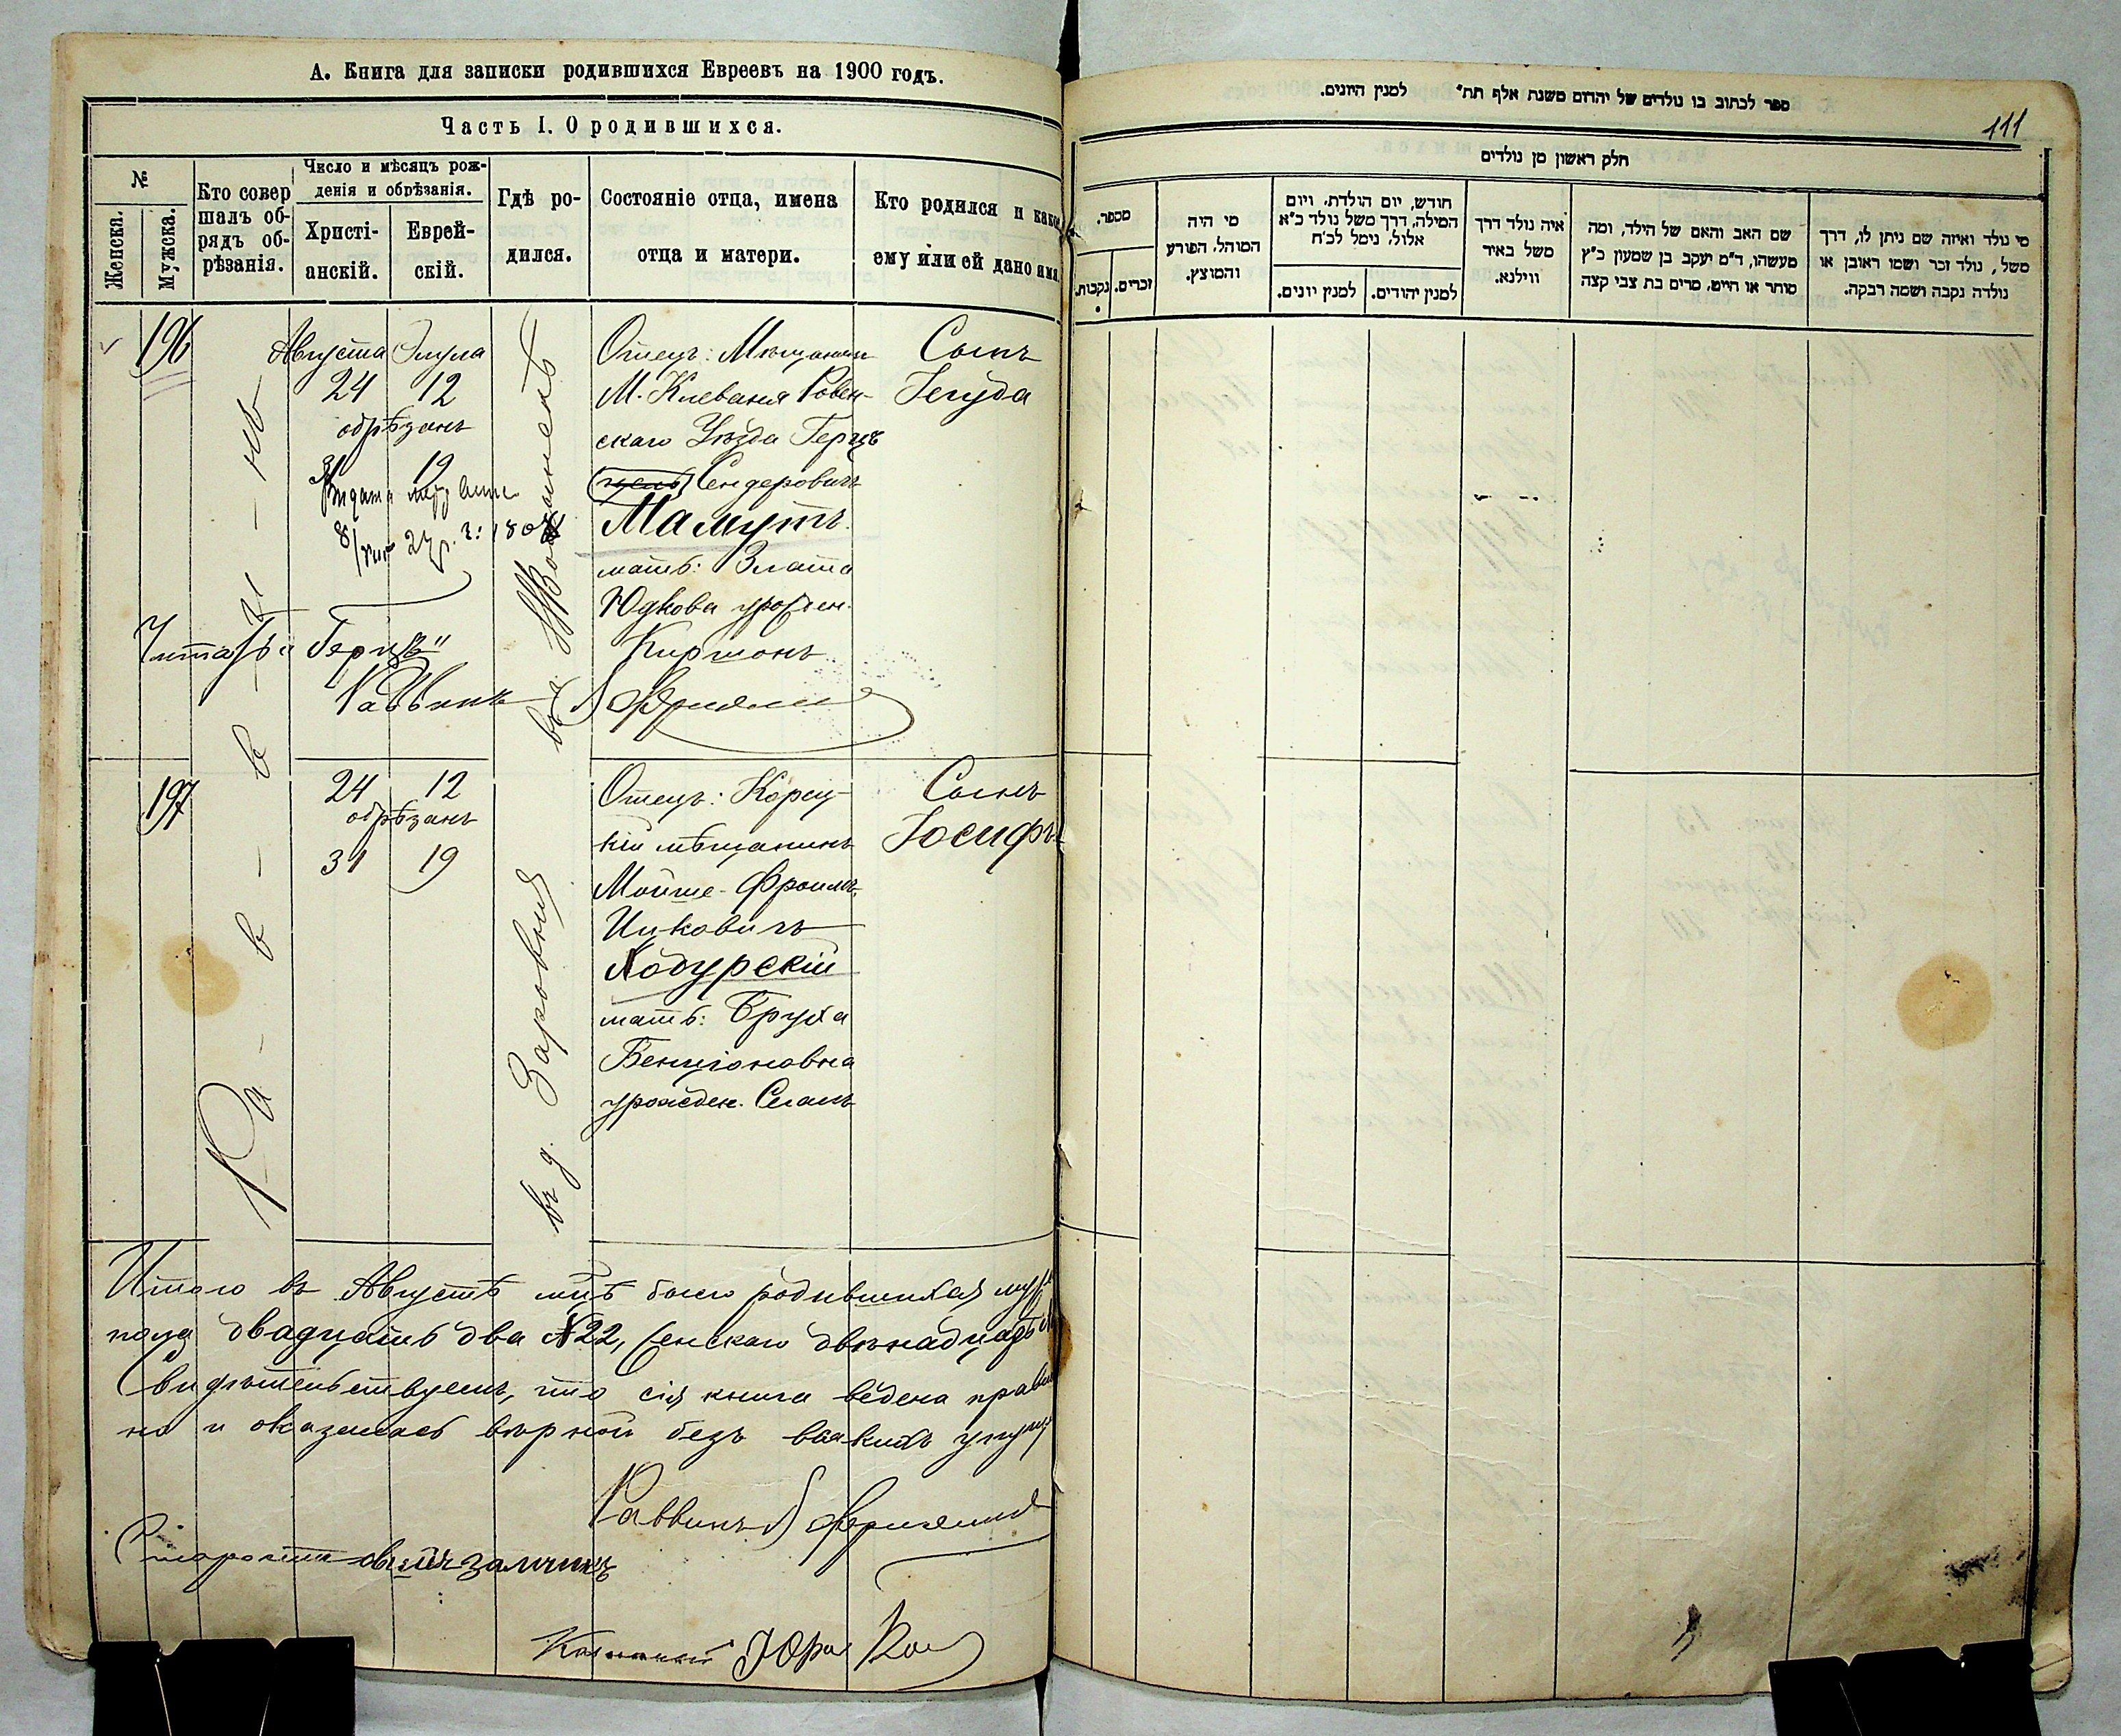 А. Книга для записки родившихся Евреевъ на 1900 годъ.
Часть I. О родившихся.
№
Женска.
Мужска.
Кто совер
шалъ об-
рядъ об-
рѣзанія.
Число и мѣсяцъ рож-
денія и обрѣзанія.
Христі-
анскій.
Еврей-
скій.
Гдѣ ро-
дился.
Состояніе отца, имена
отца и матери.
Кто родился и какое
ему или ей дано имя.
196
Августа Элула
24 12
обрѣзанъ
31 19
Отецъ: Мѣщанин
М. Клеваня Ровен-
скаго Уѣзда Герцъ
Сендеровичъ
Мамутъ
мать: Злата
Юдкова урожден.
Киршонъ
Сынъ
Іегуда
Читать "Герцъ"
Раввинъ
197
24 12
обрѣзанъ
31 19
въ д. Заровня
Отецъ: Корец-
кій мѣщанинъ
Мойше-Фроимъ
Ицковичъ
Кодурскій
мать: Бруха
Бенціоновна
урожден. Сегалъ
Сынъ
Іосифъ
Раввинъ
Итого въ Августѣ мцѣ было родившихся муж
пола двадцать два №22, женскаго двѣнадцать
Свидѣтельствуемъ, что сія книга ведена правил
но и оказалась вѣрной безъ всякихъ упущ
Раввинъ
Староста
ספר לכתוב בו נולדים של יהדום משנת אלף תת״ למנין היונים.
111
חלק ראשון מן נולדים
מספר.
נקבות.
זכרים.
מי היה
המוהל, הפורע
והמוצץ.
חודש, יום הולדת, ויום
המילה, דרך משל נולד כ״א
אלול, נימל לכ״ח
למנין יונים.
למנין יהודים.
איה נולד דרך
משל באיד
ווילנא.
שם האב והאם של הילד, ומה
מעשהו, ד״מ יעקב בן שמעון כ״ץ
סוחר או חייט, מרים בת צבי קצה
מי נולד ואיזה שם ניתן לו, דרך
משל, נולד זכר ושמו ראובן או
נולדה נקבה ושמה רבקה.